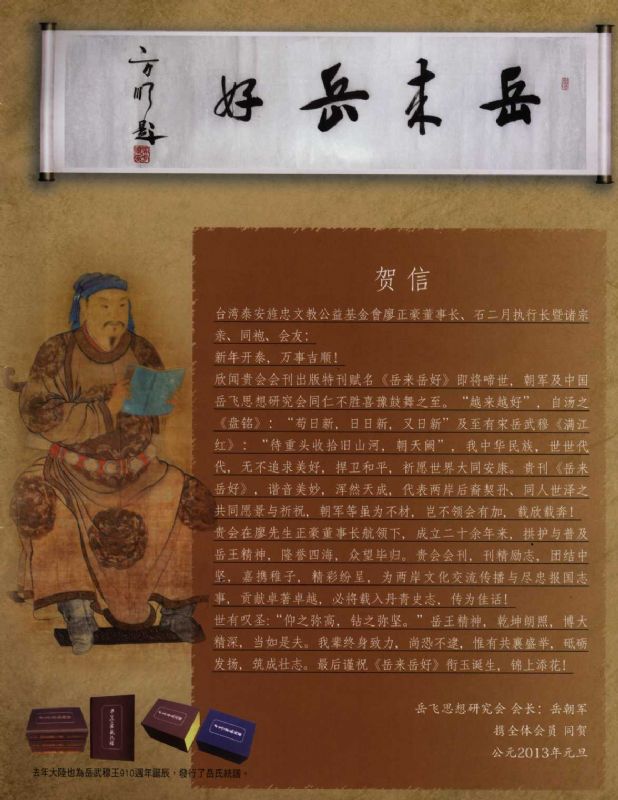 岳来岳好
方明题
贺信
台湾泰安旌忠文教公益基金會廖正豪董事长、石二月执行长暨诸宗
亲、同袍、会友：
新年开泰，万事吉顺！
欣闻贵会会刊出版特刊赋名《岳来岳好》即将啼世，朝军及中国
岳飞思想研究会同仁不胜喜豫鼓舞之至。“越来越好”，自汤之
《盘铭》：“苟日新，日日新，又日新”及至有宋岳武穆《满江
红》：“待重头收拾旧山河，朝天阙”，我中华民族，世世代
代，无不追求美好，捍卫和平，祈愿世界大同安康。贵刊《岳来
岳好》，谐音美妙，浑然天成，代表两岸后裔契孙、同人世泽之
共同愿景与祈祝，朝军等虽为不材，岂不领会有加，载欣载奔！
贵会在廖先生正豪董事长航领下，成立二十余年来，拱护与普及
岳王精神，隆誉四海，众望毕归。贵会会刊，刊精励志，团结中
坚，嘉携稚子，精彩纷呈，为两岸文化交流传播与尽忠报国志
事，贡献卓著卓越，必将载入丹青史志，传为佳话！
世有叹圣:“仰之弥高，钻之弥坚。”岳王精神，乾坤朗照，博大
精深，当如是夫。我辈终身致力，尚恐不逮，惟有共襄盛举，砥砺
发扬，筑成壮志。最后谨祝《岳来岳好》衔玉诞生，锦上添花！
岳飞思想研究会 会长：岳朝军
携全体会员 同贺
公元2013年元旦
去年大陸也為岳武穆王910週年誕辰，發行了岳氏統譜。